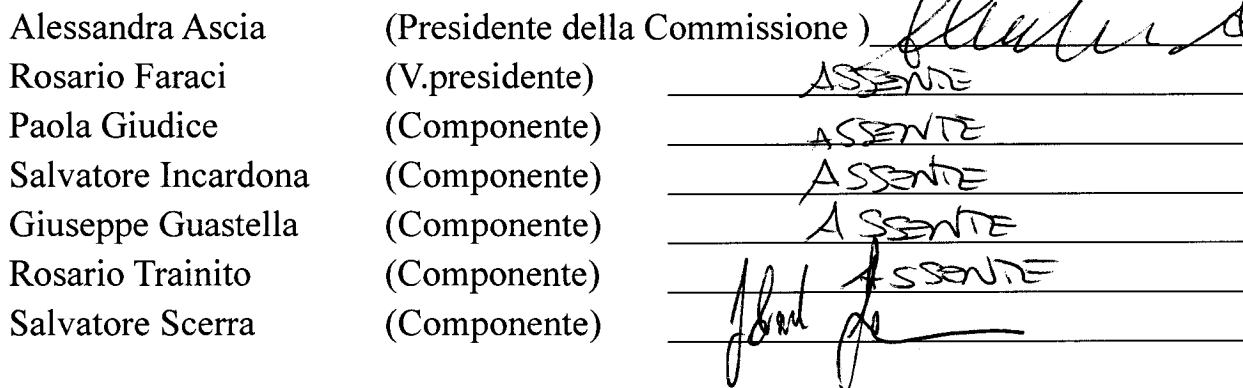 Alessandra Ascia (Presidente della Commissione )
Rosario Faraci (V.presidente) ASSENTE
Paola Giudice (Componente) ASSENTE
Salvatore Incardona (Componente) ASSENTE
Giuseppe Guastella (Componente) ASSENTE
Rosario Trainito (Componente) ASSENTE
Salvatore Scerra (Componente)